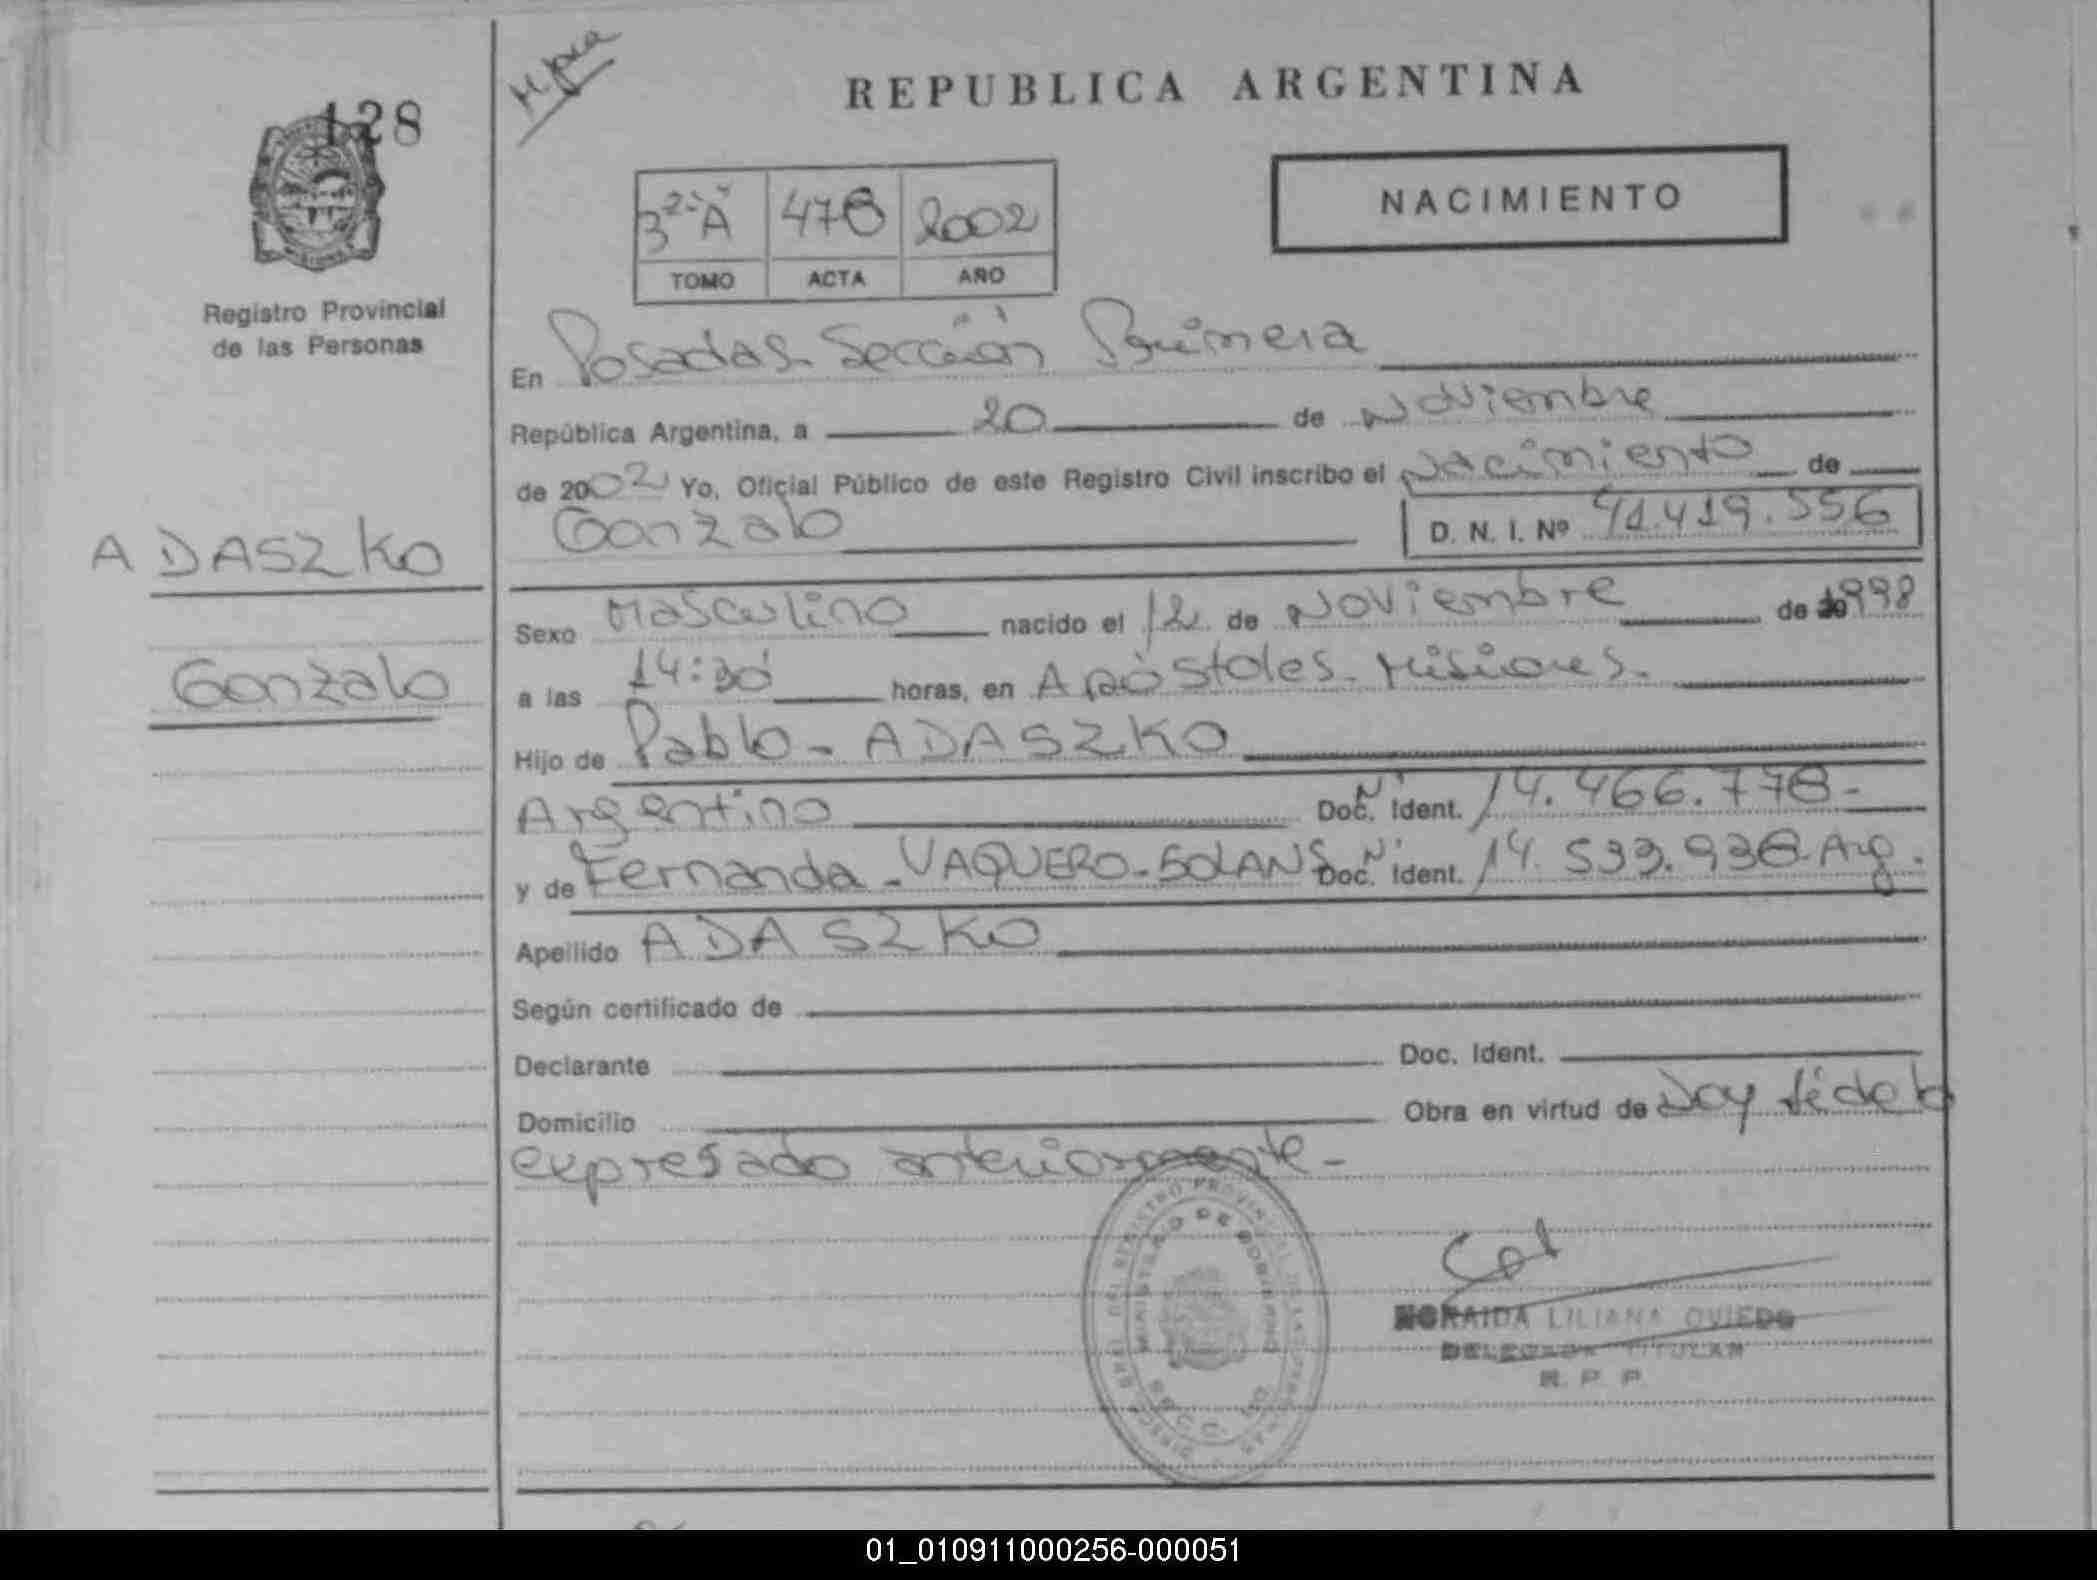 128
Registro Provincial
de las Personas
ADASZKO
Gonzalo
REPUBLICA ARGENTINA
NACIMIENTO
3 2º A 478 2002
TOMO ACTA AÑO
En Posadas. Sección Primera
República Argentina, a 20 de Noviembre
de 2002 Yo, Oficial Público de este Registro Civil inscribo el Nacimiento de
Gonzalo D. N. I. Nº 41.419.556
Sexo Masculino nacido el 12 de Noviembre de 1998
a las 14:30 horas, en Apóstoles. Misiones.
Hijo de Pablo - ADASZKO
Argentino Doc. Ident. Nº 14.466.778-
y de Fernanda - VAQUERO - SOLANS Doc. Ident. Nº 14.533.938 Arg.
Apellido ADASZKO
Según certificado de
Declarante Doc. Ident.
Domicilio Obra en virtud de Doy fé de lo
expresado anteriormente -
MINISTERIO DE GOBIERNO
NORAIDA LILIANA OVIEDO
DELEGADA TITULAR
R. P. P.
01_010911000256-000051